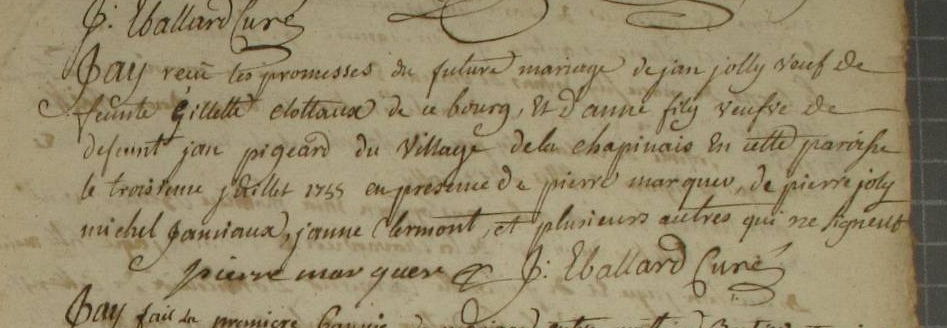 J: Eballard Curé
Jay receu les promesses du future mariage de jan jolly veuf de
feünte Gillette clottaux de ce bourg, Et d'anne fily veufve de
defeunt jan pigeard du Village dela chapinais En cette paroisse
le troisieme juillet 1755 en presence de pierre marquer, de pierre joly
michel jamiaux, janne Clermont, et plusieurs autres qui ne signent
pierre marquer J: Eballard Curé
Jay fait la premiere Bannie du mariage entre